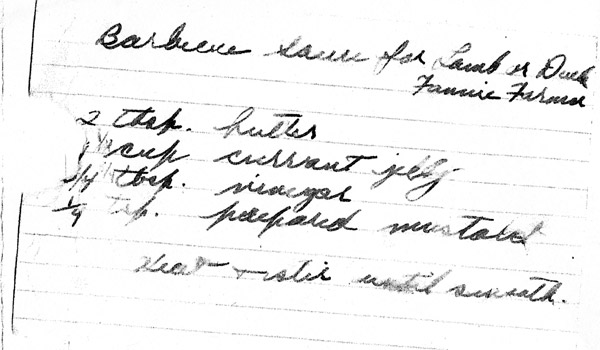 Barbecue Sauce for Lamb or Duck
Fannie Farmer
2 tbsp. butter
cup currant jelly
tbsp. vinegar
1/4 tsp. prepared mustard
Heat + stir until smooth.